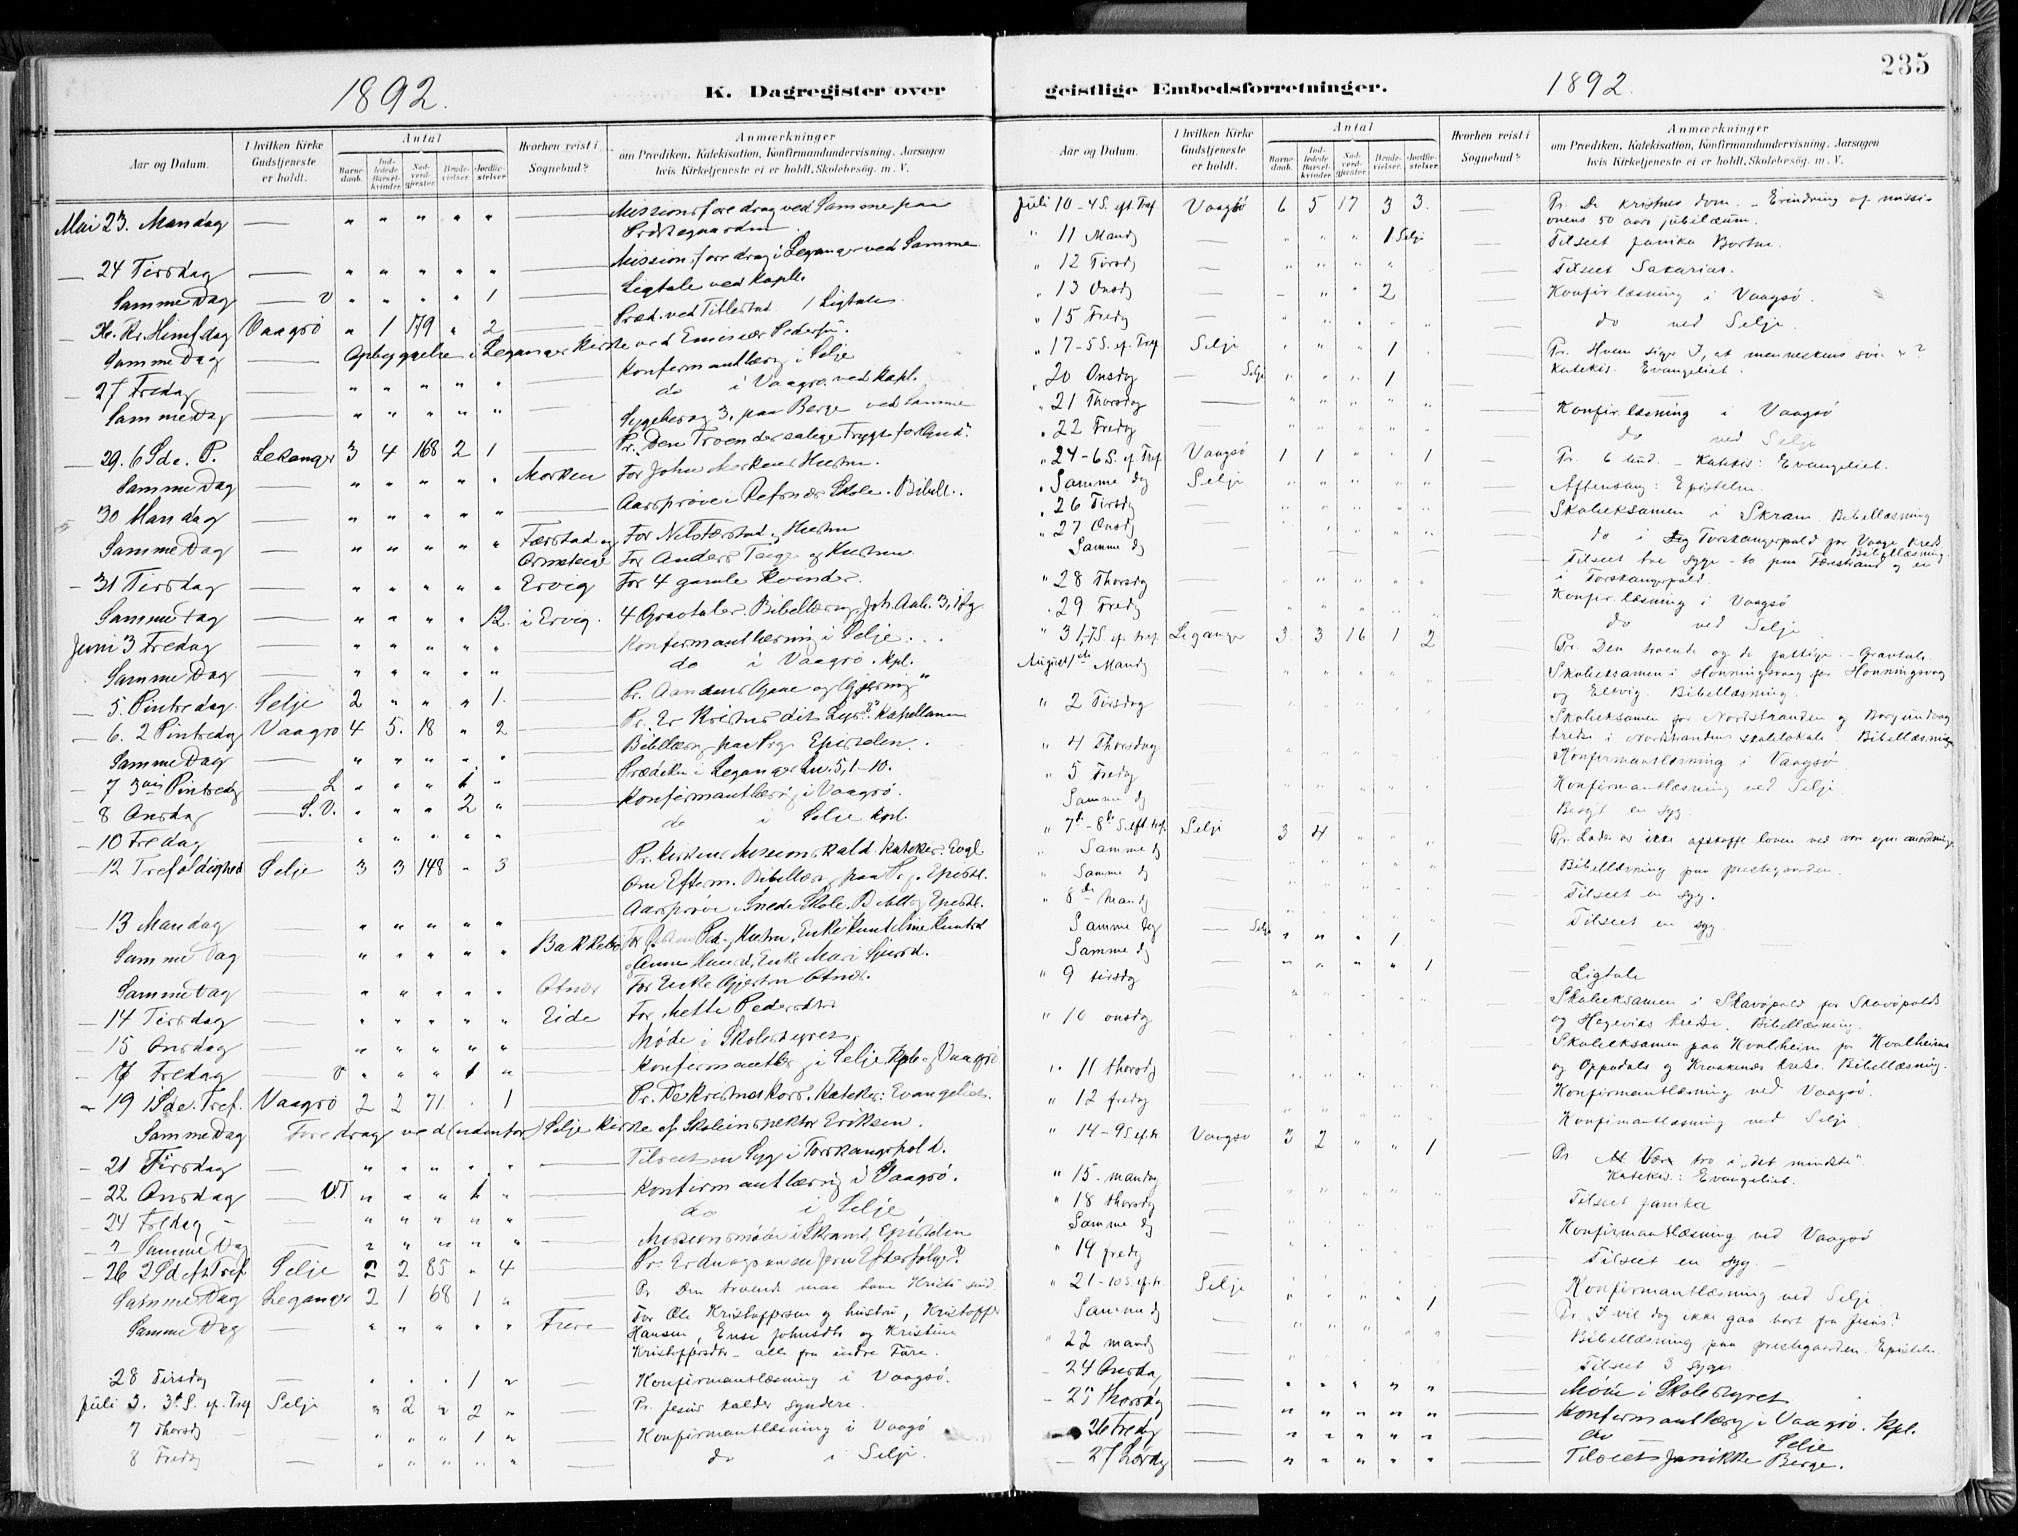 1892.
K. Dagregister over
Aar og Datum.
I hvilken Kirke Gudstjeneste er holdt.
Antal
Barnedaab.
Indledede Barselkvinder.
Nadverdgjester
Brudevielser.
Jordfæstelser
Hvorhen reist i Sognebud?
Anmærkninger
om Prædiken, Katekisation, Konfirmandundervisning, Aarsagen
hvis Kirketjeneste ei er holdt, Skolebesøg. m. V.
Mai 23. Mandag — " " " " " — Missionsforedrag ved Samme paa
Præstegaarden
— 24 Tirsdag — " " " " " — Missionsforedrag i Leganger ved Samme
Samme Dag — V " " " " 1 — Ligtale ved Kapll.
— Kr. Himf.dag Vaagsø " 1 179 " 2 — 1 Ligtale
Samme Dag — Opbyggelse i Leganger Kirke ved Emissær
— 27 Fredag — " " " " " — i Selje
Samme Dag — " " " " " — do i Vaagsø ved Kapl.
Sygebesøg 3, paa Berge ved Samme
— 29. 6 S. e. P. Lekanger 3 4 168 2 1 — Pr. Den Troendes salige
Samme Dag — " " " " " Morken For John Morkens Hustru.
— 30 Mandag — " " " " " — Aarsprøve i Refsnæs Skole. Bibell.
Samme Dag — " " " " " Færstad og For Hustru
Ormeteige For Anders og Hustru
— 31 Tirsdag — " " " " " Ervig For 4 gamle Kvinder.
Samme Dag — " " " " 12. i Ervig. 4 Gravtaler. Bibellæsng, Joh. Aab. 3,
Juni 3 Fredag — " " " " " — Konfirmantlæsning i Selje
Samme Dag — " " " " " — do i Vaagsø. Kpl.
— 5. Pintsedag Selje 2 " " " 1. — Pr. Aandens Gave og Gjerning
— 6. 2 Pintsedag Vaagsø 4 5. 18 " 2 — Pr. Er Kristus dit Lys? Kapellanen
Samme Dag — " " " " " — Bibellæsng paa Prg. Epistelen.
— 7 3die Pintsedag — L " " " 1 " — Prædiken i Leganger Lu. 5, 1-10.
— 8 Onsdag — S. V. " " " 2 " — Konfirmantlæsng i Vaagsø.
— 10 Fredag — " " " " " — do i Selje Kpl.
— 12 Trefoldighed Selje 3 3 148 " 3 — Pr. Kirkens Missionskald Katekis. Evgl
Om Efterm. Bibellæsng paa Prg. Epistl.
— 13 Mandag — " " " " " — Aarsprøve i Skole. Epistl.
Samme Dag — " " " " " Bakkebø
Samme Dag — " " " " " Otnes For Enke Otnes.
— 14 Tirsdag — " " " " " Eide For Mette Pedersdtr
— 15 Onsdag — " " " " " — Møde i Skolestyret
— 17 Fredag — V " " " 1 " — Konfirmantlæsng i Selje Kpl. og Vaagsø
— 19 1 S de. Tref. Vaagsø 2 2 71 " 1 — Pr. De Kristnes Kors. Katekis: Evangeliet.
Samme Dag Foredrag ved (udenfor) Selje Kirke af Skoleinspektør Eriksen.
— 21 Tirsdag — " " " " " — Tilseet en Syg i Torskangerpold.
— 22. Onsdag — V.T " " " 1 " — Konfirmantlæsng i Vaagsø.
— 24 Fredag — " " " " " — do i Selje
— Samme Dag — " " " " " — Missionsmøde i Skram, Epistelen
— 26 2 S d eft Tref. Selje 2 2 85 " 4 — Pr. Er du ogsaa en Efterfølger?
Samme Dag Leganger 2 1 68 1 " — Pr Den troende maa have Kristi sind.
Samme Dag — " " " " " For Ole Kristoffersen og hustru, Kristoffer
Hansen, Johnsdtr og Kristine
Kristoffersdtr – alle fra indre Fure.
28 Tirsdag — " " " 1 " — Konfirmantlæsning i Vaagsø.
Juli 3. 3d S. ef. Tref Selje " 2 " 2 " — Pr. Jesus kalder syndere.
7 Thorsdg — " " " 1 " — Konfirmantlæsning i Vaagsø
8 Fredag — " " " " " — do i Selje.
geistlige Embedsforretninger.
1892.
235
Aar og Datum.
I hvilken Kirke Gudstjeneste er holdt.
Antal
Barnedaab.
Indledede Barselkvinder.
Nadverdgjester
Brudevielser.
Jordfæstelser
Hvorhen reist i Sognebud?
Anmærkninger
om Prædiken, Katekisation, Konfirmandundervisning, Aarsagen
hvis Kirketjeneste ei er holdt, Skolebesøg. m. V.
Juli 10 – 4 S. eft. Tref. Vaagsø 6 5 17 3 3. — Pr. De kristnes dom. – Erindring af missi-
onens 50 aars jubilæum.
" 11 Mandg — " " " 1 Selje — Tilseet Janika Bortne.
" 12 Tirsdg — " " " " " — Tilseet Sakarias.
" 13 Onsdg — " " " 2 — Konfir. læsning i Vaagsø.
" 15 Fredg — " " " " " — do ved Selje.
" 17 – 5 S. ef. Tref Selje " " " 1 " — Pr. Hvem siger I, at menneskens søn er?
Katekis. Evangeliet.
" 20 Onsdag — Selje " " " 1 —
" 21 Thorsdag — " " " " " — Konfir. læsning i Vaagsø
" 22 Fredg — " " " " " — do ved Selje
" 24 – 6 S. ef. Tref. Vaagsø 1 1 " " 1 — Pr. 6 bud. – Katekis: Evangeliet.
" Samme dg Selje — Aftensang: Epistelen
" 26 Tirsdg — Skoleeksamen i Skram. Bibellæsning
" 27 Onsdg — do i Torskangerpold for Vaage Kreds
Bibellæsning.
Samme dg — Tilseet tre syge – to paa Færestrand og en
i Torskangerpold.
" 28 Thorsdg — Konfir. læsning i Vaagsø
" 29 Fredg — do ved Selje
" 31, 7 S. ef. tref. Leganger 3 3 16 1 2 — Pr. Den troende og de fattige. – Gravtale
August 1ste Mandg — Skoleeksamen i Honningsvaag for Honningsvaag
og Eltvig. Bibellæsning.
" 2 Tirsdag — Skoleeksamen for Nordstranden og Borgundvaag
kredse i Nordstrandens skolelokale. Bibellæsning
" 4 Thorsdag — Konfirmantlæsning i Vaagsø
" 5 Fredag — Konfirmantlæsning ved Selje
Samme dg — Besøgt en syg.
" 7de – 8de S. eft. tref. Selje 3 4 " " " — Pr. Lader os ikke afskaffe loven ved vore egne anordninger
" Samme dg — Bibellæsning paa prestegaarden.
" Samme dg — Tilseet en syg.
" 8de Mandg — Tilseet en syg
Samme dg — Selje " " " 1 —
Samme dg — " " " " 1 — Ligtale
" 9 tirsdg — Skoleeksamen i Skavøpold for Skavøpolds
og Hagevigs kredse. Bibellæsning.
" 10 onsdg — Skoleeksamen paa Kvalheim for Kvalheims
og Oppedals og Kraakenæs kredse. Bibellæsning.
" 11 thorsdg — Konfirmantlæsning ved Vaagsø.
" 12 fredag — Konfirmantlæsning ved Selje
" 14 – 9 S. ef. tr. Vaagsø 3 2 " " 1 — Pr Vær tro i „det mindste".
Katekis: Evangeliet.
" 15. mandag — Tilseet Janika
" 18 thorsdg — Konfirmantlæsning ved Vaagsø
Samme dg — Tilseet en syg. —
" 19 fredg — Konfirmantlæsning ved Selje
" 21 – 10 S. ef. tr. Selje — Pr „I vil dog ikke gaa bort fra Jesus?
Samme dg — " " " " 1 — Bibellæsning paa prestegaarden. Epistelen.
" 22 mandg — Tilseet 3 syge
– 24 Onsdag — " " " " " — Møde i Skolestyret
– 25 Thorsdag — " " " " " — Konfirmantlæsg i Vaagsø. Kpl.
– 26 Fredg — " " " " " — do – Selje
– 27 Lørdg — " " " " " — Tilseet Janikke Berge.